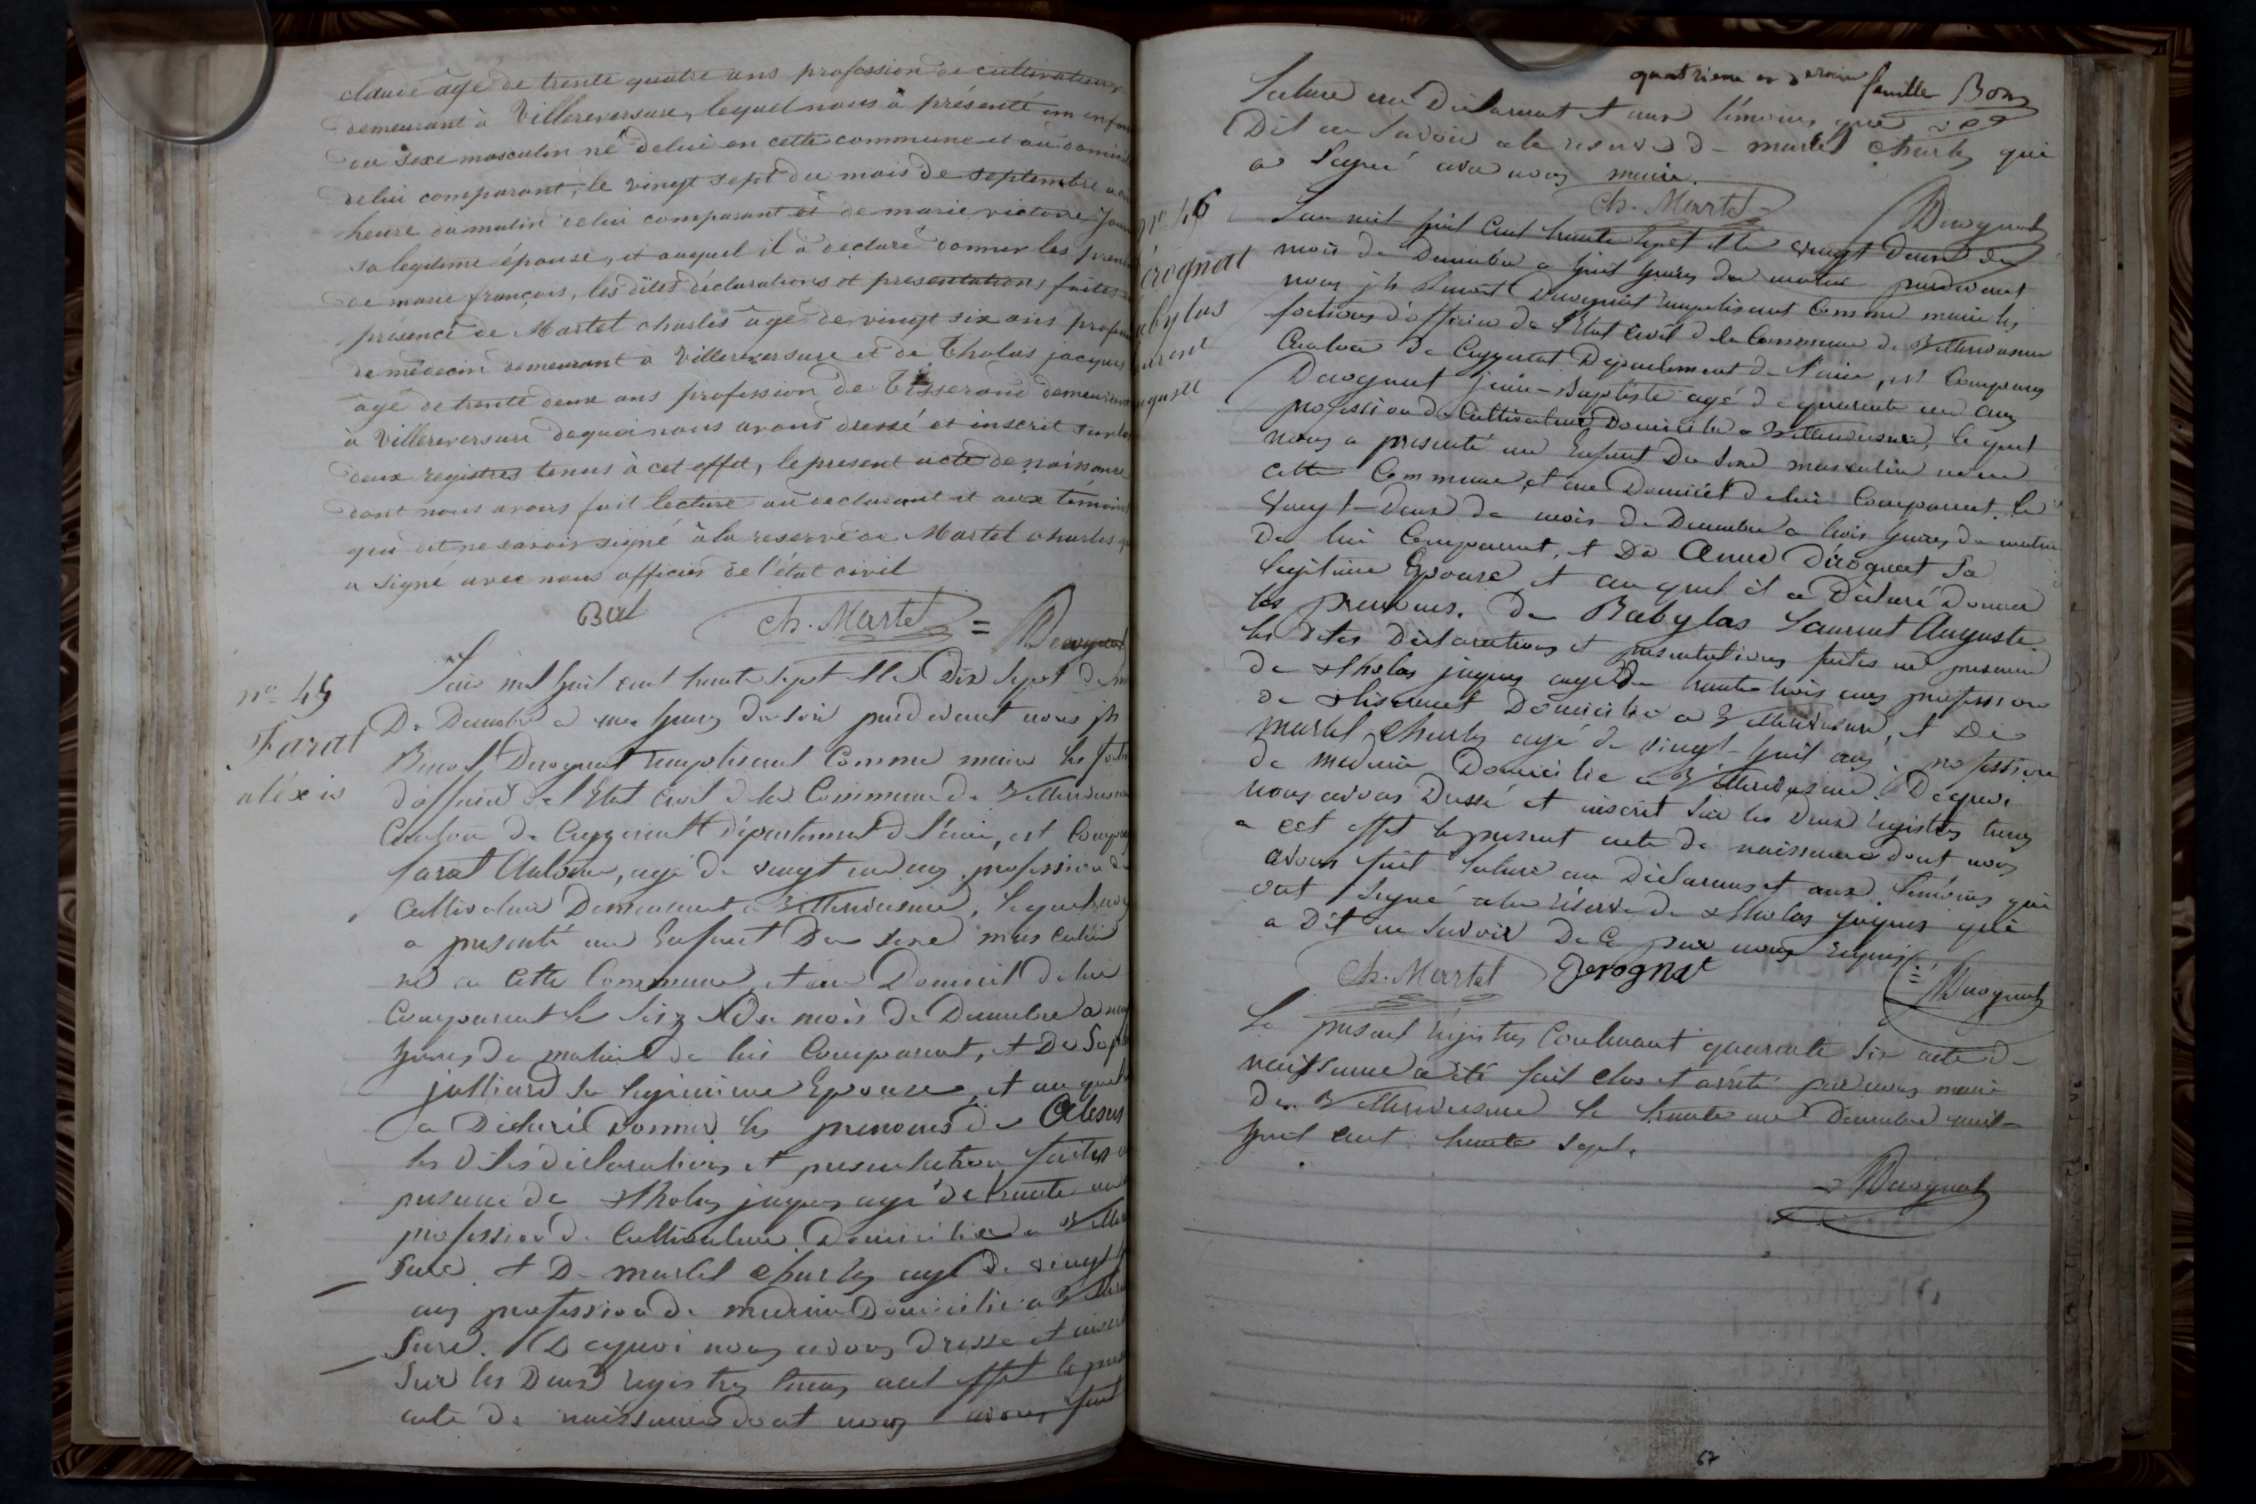 claude âgé de trente quatre ans profession de cultivateur
demeurant à Villereversure, lequel nous à présenté un enfan
du sexe masculin né delui en cette commune et au domicil
de lui comparant, le vingt sept du mois de septembre a
heure du matin de lui comparant et de marie victoire
sa legitime épouse, et auquel il a déclaré donner les prén
de marie françois, les dites déclarations et présentations faites
présence de Martel charles âgé de vingt six ans profes
de médecin demeurant à Villereversure et de Tholas jacques
âgé de trente deux ans profession de Tisserand demeurant
à Villereversure dequoi nous avons dressé et inscrit sur les
deux registres tenus à cet effet, le présent acte de naissance
dont nous avons fait lecture au déclarant et aux témoins
qui ont dit ne savoir signé à la reserve de Martel charles
a signé avec nous officier de l'état civil
Ch. Martel = Derognat
n° 45
Farat
aléxis
L'an mil huit cent trente sept & le Dix Sept du
De Decembre a heures du soir pardevant nous jh
Benoit Derognat remplissant Comme maire les fon
d'officier de l'Etat Civil de la Commune de Villereversure
Canton de Ceyzeriat département de l'ain, est Compa
farat Antoine, agé de vingt ans, profession de
Cultivateur Demeurant a Villereversure, lequel nous
a présenté un Enfant Du sexe masculin
né en Cette Commune, et au Domicil de lui
Comparant le Seize du mois de Decembre a
heures du matin de lui Comparant, et De
julliard sa legitime Epouse, et auquel
a Déclaré Donner les prenoms de Alexis
les dites déclarations et presentation faites
presence de Tholas jaques agé de trente
profession de Cultivateur Domicilié a Viller
sure et De martel Charles agé de vingt
ans profession de medecin Domicilié a Viller
sure. De quoi nous avons dressé et inscrit
Sur les Deux registres tenus a cet effet le pres
acte de naissance dont nous avons fait
quatrieme et dernier famille Bon
Lecture au Déclarant et aux témoins que
Dit ne savoir a la reserve de martel Charles qui
a Signé avec nous maire.
Ch. Martel Derognat
n° 46
érognat
abylas
aurent
uguste
L'an mil huit Cent trente Sept & le vingt Deux du
mois de Decembre a huit heures du matin pardevant
nous jh Benoit Derognat remplissant Comme maire les
fonctions d'officier de l'Etat Civil de la Commune de Villereversure
Canton de Ceyzeriat Département de l'ain, est Comparu
Derognat jean-Baptiste agé de quarante un ans
profession de Cultivateur Domicilié a Villereversure, lequel
nous a presenté un Enfant Du Sexe masculin né en
cette Commune, et au Domicil de lui Comparant, le
vingt-Deux du mois de Decembre a trois heures du matin
De lui Comparant, et De Anne Dérognat Sa
legitime Epouse et au quel il a Déclaré Donner
les prenoms. De Babylas Laurent Auguste.
les dites Déclarations et presentations faites en presence
de Tholas jaques agé de trente trois ans profession
de Tisserant Domicilié a Villereversure, et De
martel Charles agé de vingt-huit ans, profession
de medecin Domicilié a Villereversure. Dequoi
nous avons Dressé et inscrit Sur les Deux registres tenus
a cet effet le present acte de naissance dont nous
avons fait lecture au Déclarant et aux témoins qui
ont Signé a la réserve de Tholas jaques qui
a Dit ne Savoir De Ce par nous requis
Ch. Martel Derognat Derognat
Le present registre Contenant quarante Six acte de
naissance a été fait clos et arrété par nous maire
De Villereversure le trente un Décembre mil
huit Cent trente Sept.
Derognat
67